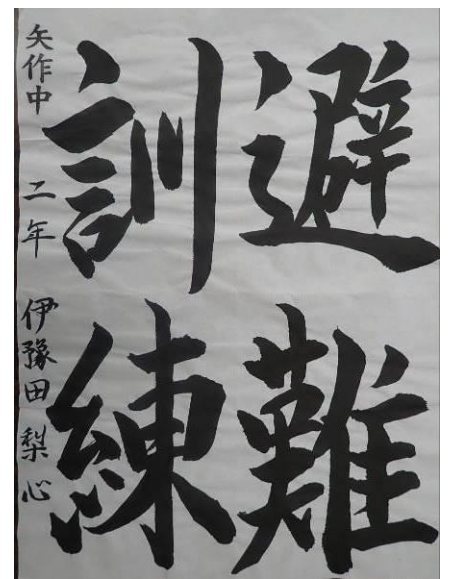 避難
訓練
矢作中 二年 伊豫田 梨心